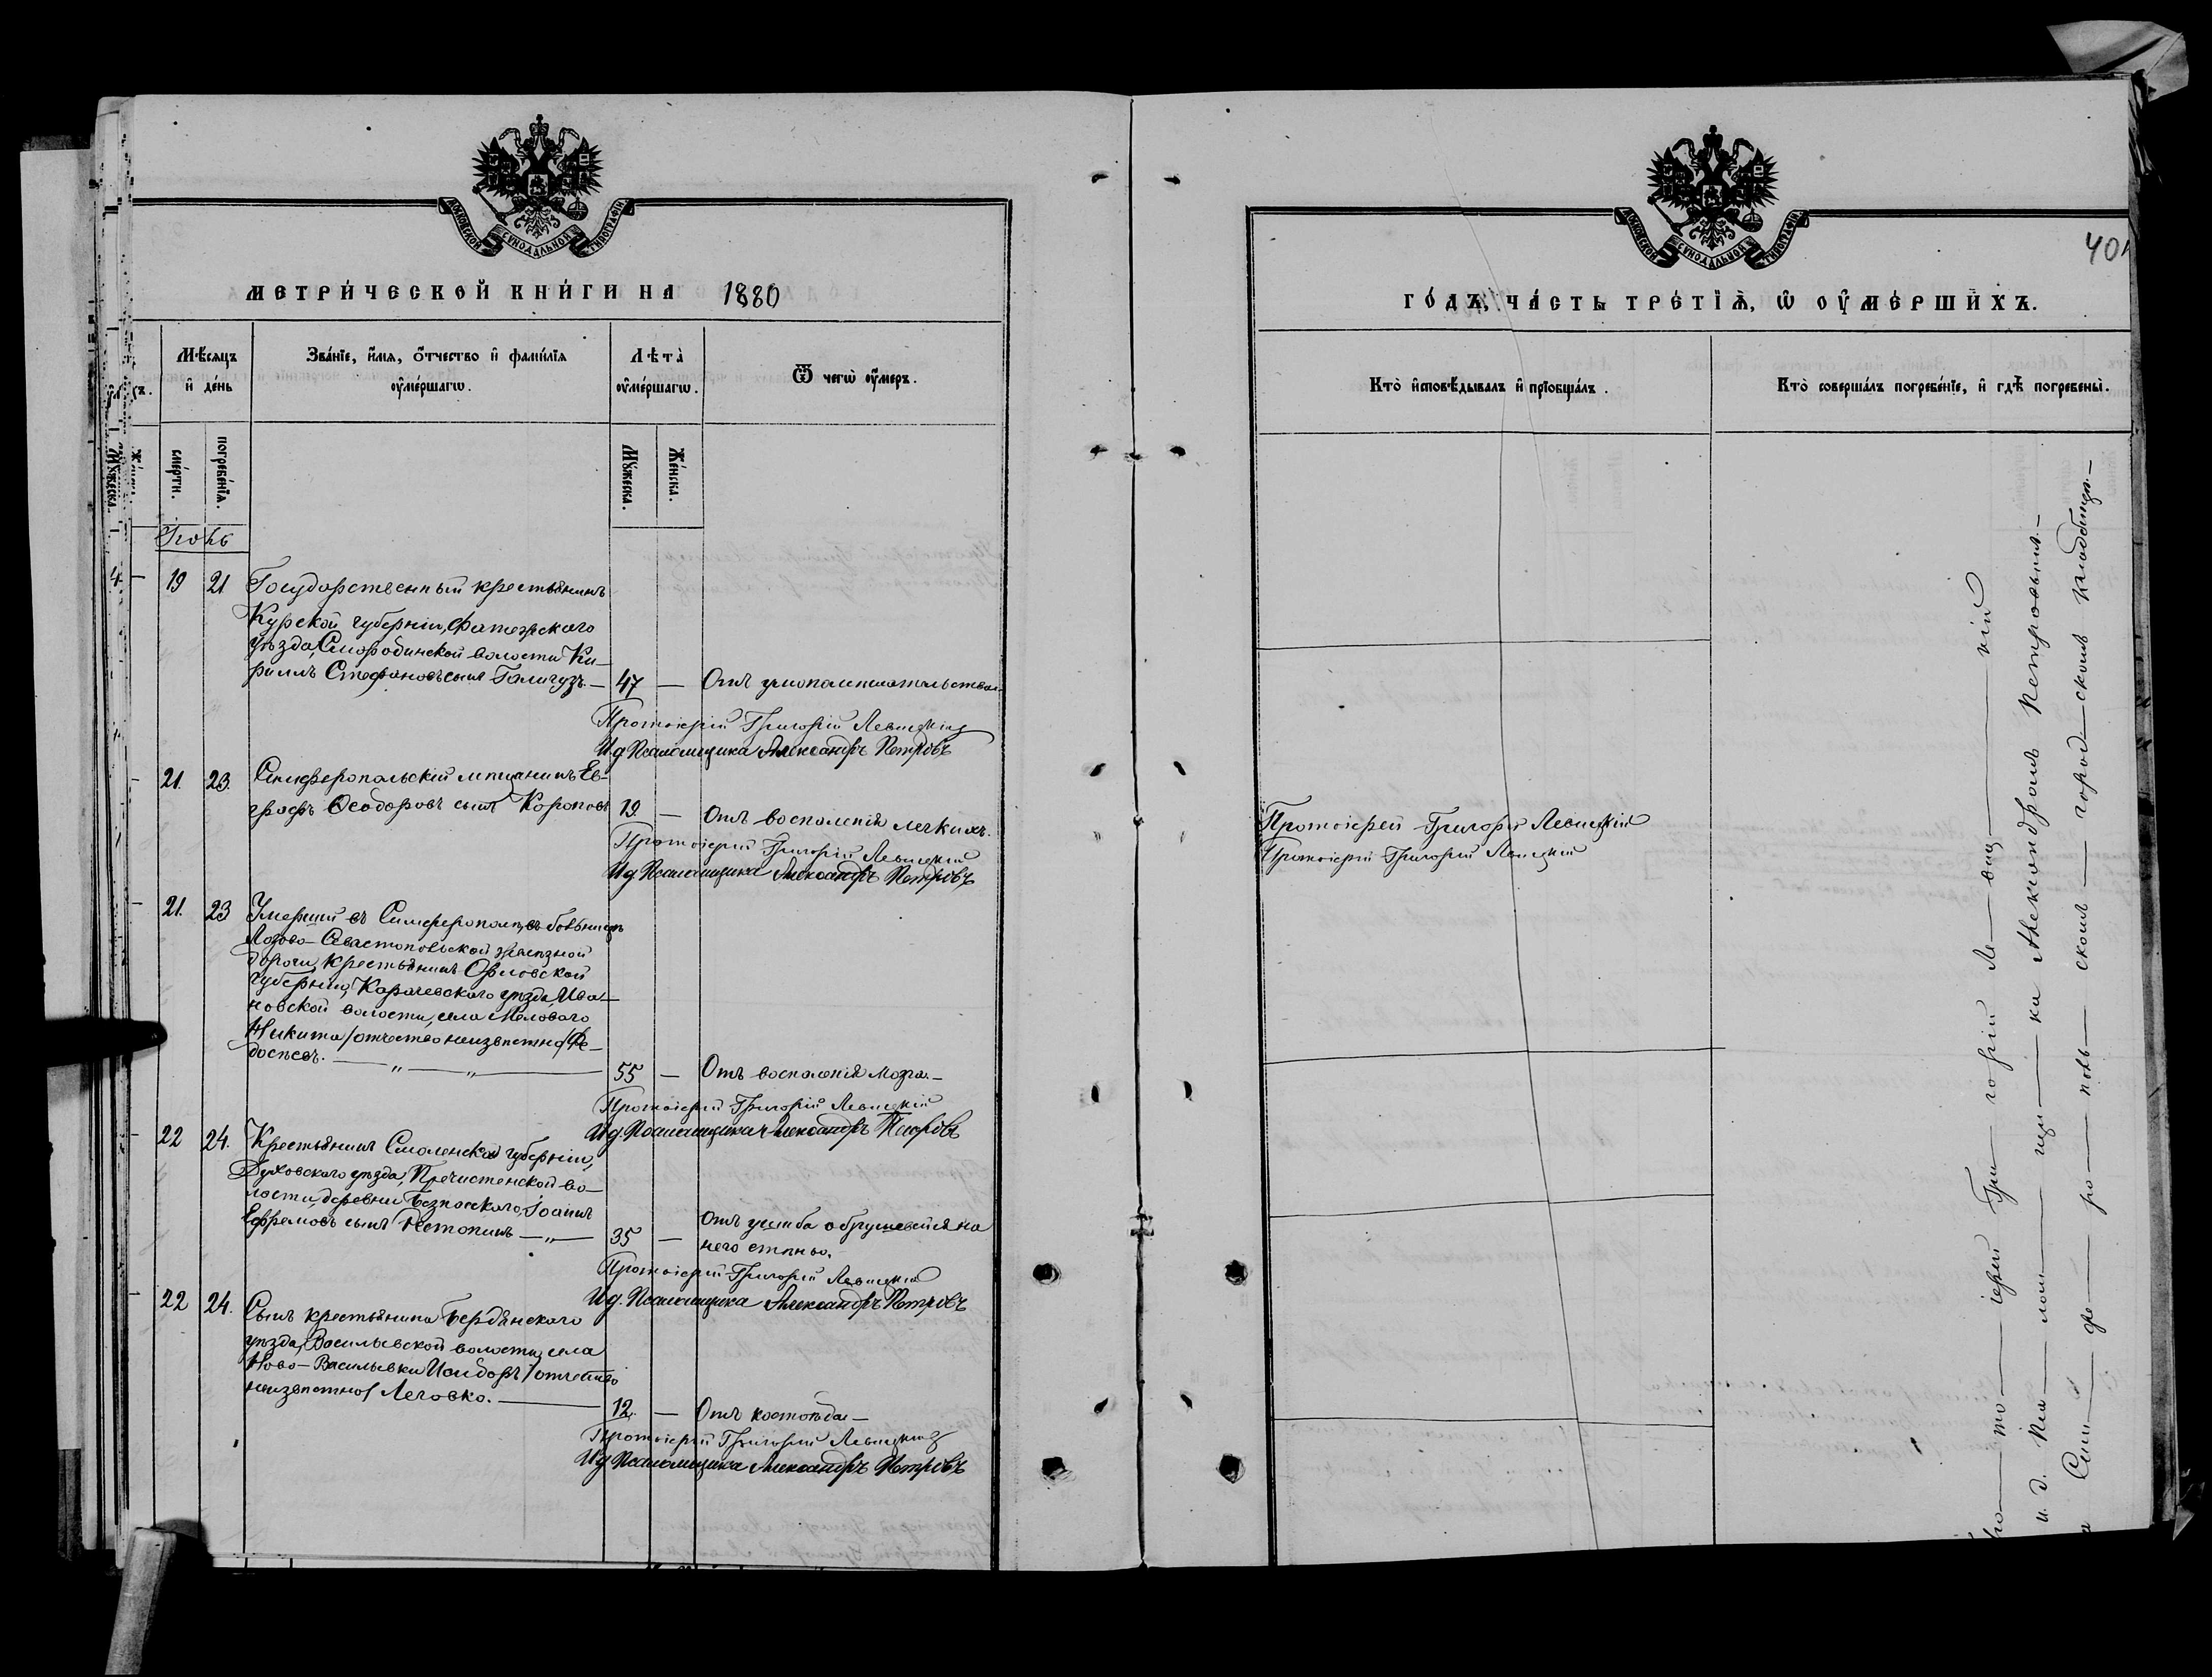 МОСКОВСКОЙ СѴНОДАЛЬНОЙ ТИПОГРАФІИ
МЕТРИ́ЧЕСКОЙ КНИ́ГИ НА 1880
Мѣ́сяцъ и҆ де́нь
Зва́нїе, и҆́мя, ѻ҆́тчество и҆ фами́лїя ᲂу҆ме́ршагѡ.
Лѣ́та̀ ᲂу҆ме́ршагѡ.
Ѿ чегѡ̀ ᲂу҆́меръ.
Мꙋ́жеска.
Же́нска.
сме́рти.
погребе́нїѧ.
Мꙋ́жеска.
Же́нска.
Іюнь
4. — 19 21 Государственный крестьянинъ
Курской губерніи, Фатежскаго
уѣзда, Смородинской волости Ки-
риллъ Стефановъ сынъ Галигузъ. — 47 — Отъ умопомѣшательства.
Протоіерей Григорій Левицкій
И.д. Псаломщика Александръ Петровъ
— 21. 23. Симферопольскій мѣщанинъ Ев-
графъ Ѳеодоровъ сынъ Короповъ 19. — Отъ воспаленія легкихъ.
Протоіерей Григорій Левицкій
И.д. Псаломщика Александръ Петровъ
— 21. 23 Умершій въ Симферополѣ, въ больницѣ
Лозово-Севастопольской желѣзной
дороги, крестьянинъ Орловской
губерніи, Карачевскаго уѣзда, Ива-
новской волости, села Меловаго
Никита /отчество неизвѣстно/ Ѳе-
досѣевъ. — „ — „ —
55 — Отъ воспаленія мозга. —
Протоіерей Григорій Левицкій
И.д. Псаломщика Александръ Петровъ
— 22 24. Крестьянинъ Смоленской губерніи,
Духовскаго уѣзда, Пречистенской во-
лости, деревни Іоаннъ
Ефремовъ сынъ — „ — 35 — Отъ ушиба обрушевшейся на
него стѣны.
Протоіерей Григорій Левицкій
И.д. Псаломщика Александръ Петровъ
— 22 24. Сынъ крестьянина Бердянскаго
уѣзда, Васильевской волости, села
Ново-Васильевки Исидоръ /отчество
неизвѣстно/ Леговко. — 12. — Отъ костоѣды —
Протоіерей Григорій Левицкій
И.д. Псаломщика Александръ Петровъ
МОСКОВСКОЙ СѴНОДАЛЬНОЙ ТИПОГРАФІИ
ГО́ДЪ, ЧА́СТЬ ТРЕ́ТЇѦ, Ѡ҆ ОУ҆МЕ́РШИХЪ.
Кто̀ и҆сповѣ́дывалъ и҆ прїѡбща́лъ.
Кто̀ соверша́лъ погребе́нїе, и҆ гдѣ̀ погребены̀.
Протоіерей Григорій Левицкій
Протоіерей Григорій Левицкій
то — іерей Гри — горій Ле — виц — кій
и. д. Пса — лом — щи — ка Александромъ Петровымъ. —
Сим — фе — ро — поль — скомъ — город — скомъ кладбищѣ. —